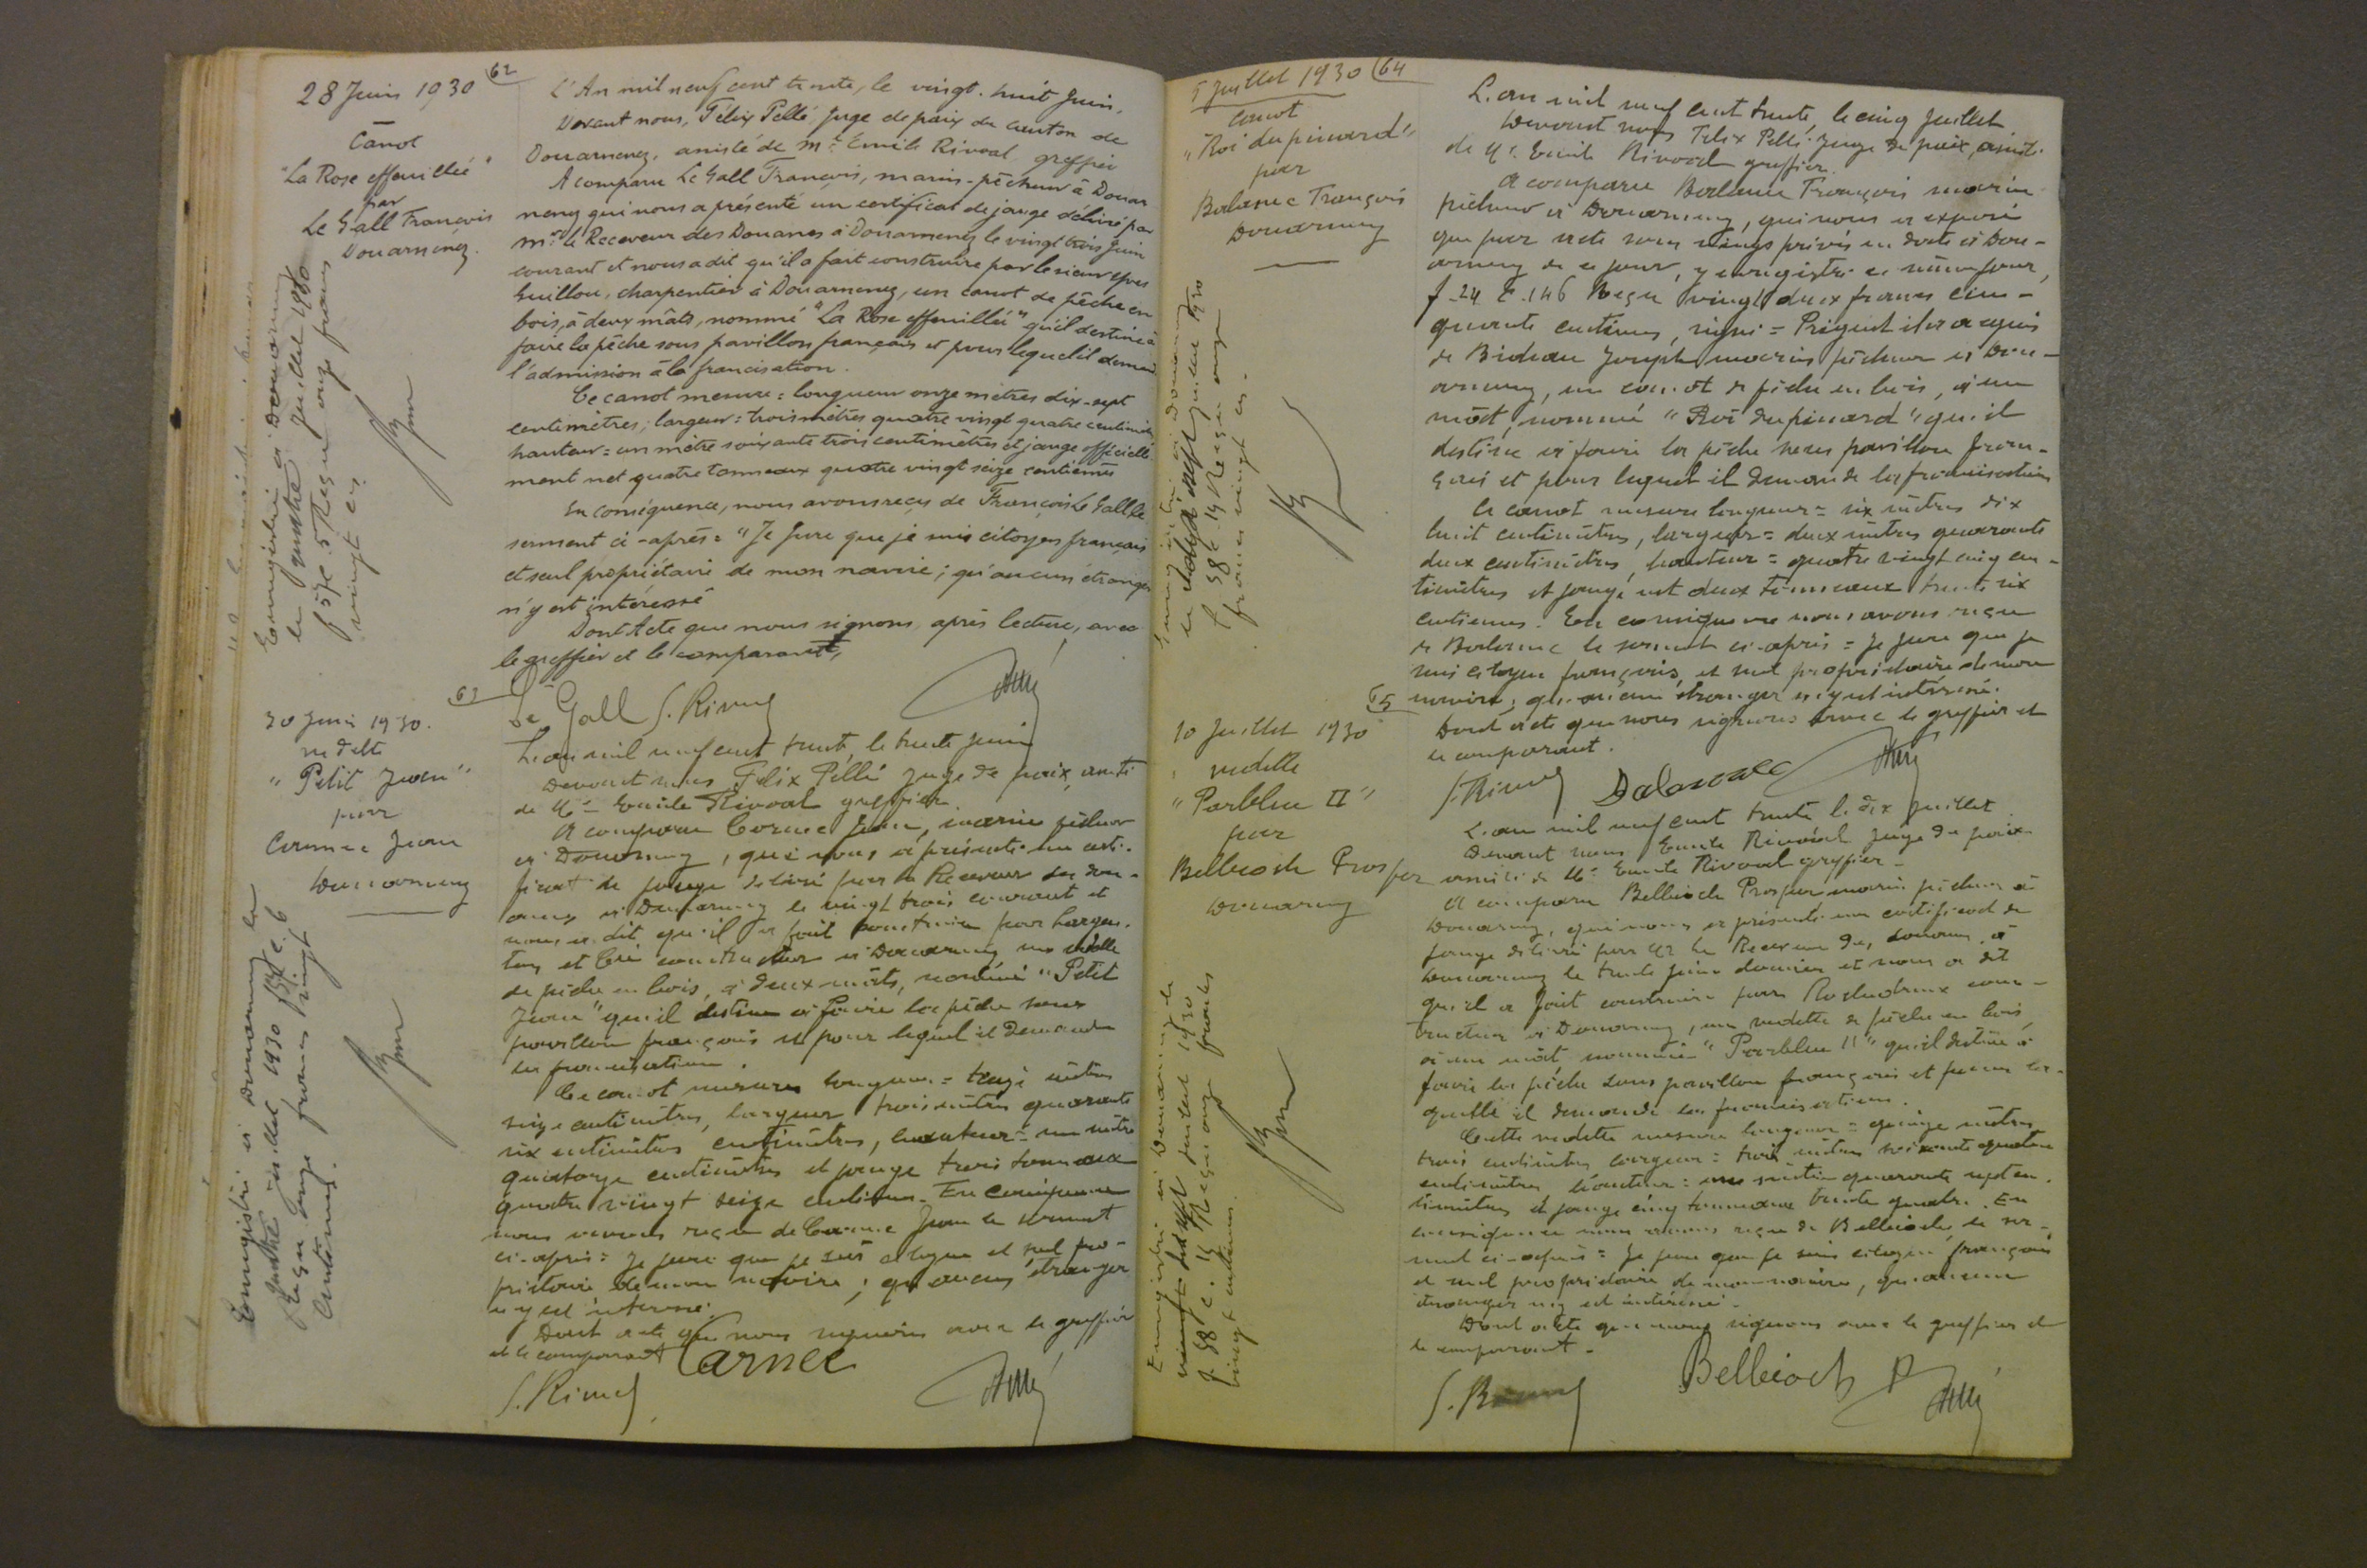 28 Juin 1930
62
Canot
"La Rose effeuillée"
par
Le Gall François
Douarnenez.
Enregistré à Douarnenez
le quatre Juillet 1930
f 57 c. 5 Reçu onze francs
vingt cs
L'An mil neuf cent trente, le vingt-huit Juin,
Devant nous, Félix Pellé, Juge de paix du canton de
Douarnenez, assisté de Me Emile Rivoal, greffier
A comparu Le Gall François, marin-pêcheur à Douar
nenez qui nous a présenté un certificat de jauge délivré par
Mr le Receveur des Douanes à Douarnenez le vingt trois Juin
courant et nous a dit qu'il a fait construire par le sieur Yves
Guillou, charpentier à Douarnenez, un canot de pêche en
bois, à deux mâts, nommé "La Rose effeuillée" qu'il destine à
faire la pêche sous pavillon français et pour lequel il deman
l'admission à la francisation.
Ce canot mesure : longueur onze mètres dix-sept
centimètres ; largeur : trois mètres quatre vingt quatre centimètres
hauteur = un mètre soixante trois centimètres et jauge officielle
ment net quatre tonneaux quatre vingt seize centièmes
En conséquence, nous avons reçu de François Le Gall le
serment ci-après = "Je Jure que je suis citoyen français
et seul propriétaire de mon navire ; qu'aucun étranger
n'y est intéressé
Dont Acte que nous signons, après lecture, avec
le greffier et le comparant,
Le Gall
63
30 Juin 1930.
vedette
"Petit Jean"
par
Cornec Jean
Douarnenez
Enregistré à Douarnenez le
quatre juillet 1930 f 57 c. 6
Reçu onze francs vingt
centimes.
L'an mil neuf cent trente, le trente Juin
Devant nous Félix Pellé Juge de paix, assisté
de Me Emile Rivoal greffier.
A comparu Cornec Jean, marin pêcheur
à Douarnenez, qui nous a présenté un certi-
ficat de jauge délivré par le Receveur des dou-
anes à Douarnenez le vingt trois courant et
nous a dit qu'il a fait construire par
et constructeur à Douarnenez une vedette
de pêche en bois, à deux mâts, nommé "Petit
Jean" qu'il destine à faire la pêche sous
pavillon français et pour lequel il demande
la francisation.
Ce canot mesure longueur = treize mètres
seize centimètres, largeur trois mètres quarante
six centimètres centimètres, hauteur = un mètre
quatorze centimètres et jauge trois tonneaux
quatre vingt seize centièmes. En conséquence
nous avons reçu de Cornec Jean le serment
ci-après : Je jure que je suis citoyen et seul pro-
priétaire de mon navire ; qu'aucun étranger
n'y est intéressé.
Dont acte que nous signons avec le greffier
et le comparant
Cornec
5 Juillet 1930
64
canot
"Roi du pinard"
par
Balanec François
Douarnenez
Juillet 1930
f 58 c 14 Reçu onze
francs vingt cs.
L'an mil neuf cent trente, le cinq Juillet
Devant nous Félix Pellé Juge de paix, assisté
de Me Emile Rivoal greffier.
A comparu Balanec François marin
pêcheur à Douarnenez, qui nous a exposé
que par acte sous seings privés en date à Dou-
arnenez de ce jour, y enregistré ce même jour,
f. 24 c. 146 Reçu vingt deux francs cin-
quante centimes, signé = Prigent il a acquis
de Joseph marin pêcheur à Dou-
arnenez, un canot de pêche en bois, à un
mât, nommé "Roi du pinard" qu'il
destine à faire la pêche sous pavillon fran-
çais et pour lequel il demande la francisation
Ce canot mesure longueur = six mètres dix
huit centimètres, largeur = deux mètres quarante
deux centimètres, hauteur = quatre vingt cinq cen-
timètres et jauge net deux tonneaux trente six
centièmes. En conséquence nous avons reçu
de Balanec le serment ci-après = Je jure que je
suis citoyen français, et seul propriétaire de mon
navire, qu'aucun étranger n'y est intéressé.
Dont acte que nous signons avec le greffier et
le comparant.
65
10 Juillet 1930
vedette
"Parbleu II"
par
Belbeoch Prosper
Douarnenez
Enregistré à Douarnenez le
juillet 1930
f. 58 c. 15 Reçu onze francs
vingt centimes.
L'an mil neuf cent trente le dix juillet
Devant nous Emile Rivoal Juge de paix
assisté de Me Emile Rivoal greffier -
A comparu Belbeoch Prosper marin pêcheur à
Douarnenez, qui nous a présenté un certificat de
jauge délivré par Mr le Receveur des douanes à
Douarnenez le trente juin dernier et nous a dit
qu'il a fait construire par cons-
tructeur à Douarnenez, une vedette de pêche en bois,
à un mât nommée "Parbleu II" qu'il destine à
faire la pêche sous pavillon français et pour la-
quelle il demande la francisation.
Cette vedette mesure longueur = quinze mètres
trois centimètres largeur : trois mètres soixante quatre
centimètres hauteur : un mètre quarante sept cen-
timètres et jauge cinq tonneaux trente quatre. En
conséquence nous avons reçu de Belbeoch le ser-
ment ci-après = Je jure que je suis citoyen français
et seul propriétaire de mon navire, qu'aucun
étranger n'y est intéressé.
Dont acte que nous signons avec le greffier et
le comparant.
Belbeoch P